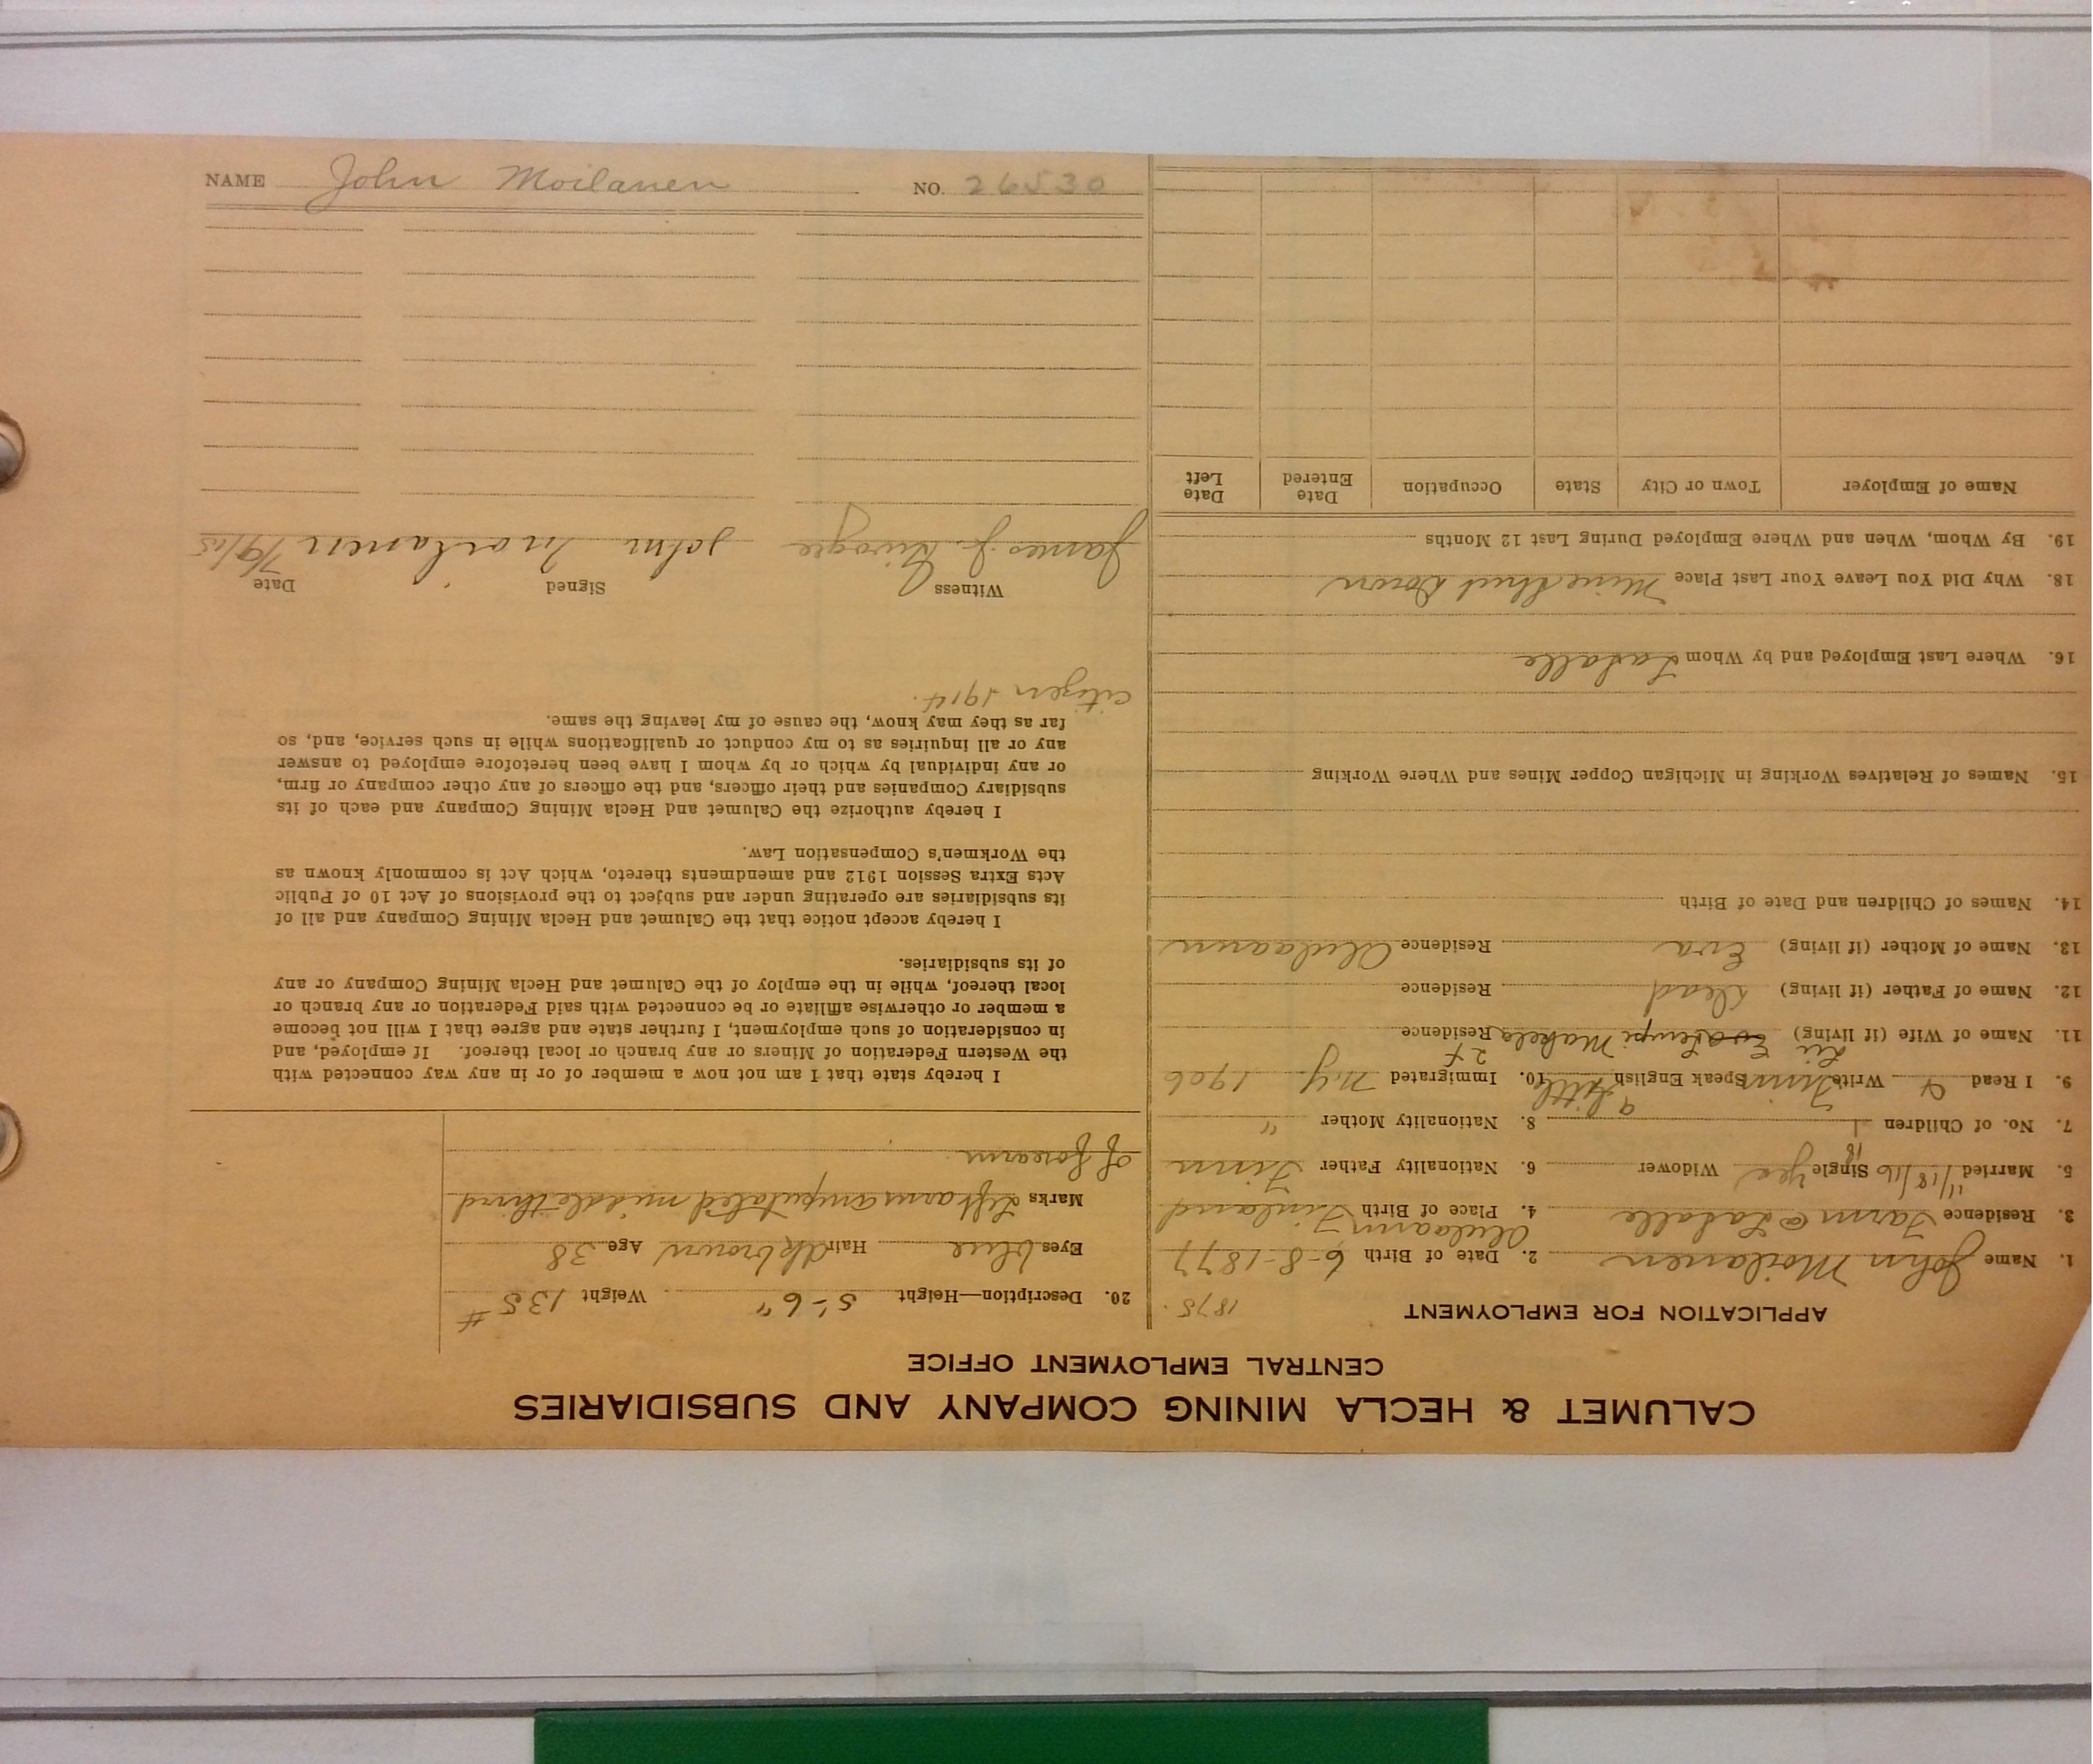 NAME John Moilanen NO. 26530
CALUMET & HECLA MINING COMPANY AND SUBSIDIARIES
CENTRAL EMPLOYMENT OFFICE
APPLICATION FOR EMPLOYMENT
1875.
1. Name John Moilanen 2. Date of Birth 6-8-1877
3. Residence Farm @ Lasalle 4. Place of Birth Finland
5. Married 11/18/16 Single yes Widower 6. Nationality Father Finn
7. No. of Children 1 8. Nationality Mother "
9. I Read & Write Finn Speak English a little 10. Immigrated N.Y. 1906
11. Name of Wife (if living) Lempi Makela Residence
12. Name of Father (if living) dead Residence
13. Name of Mother (if living) Eva Residence
14. Names of Children and Date of Birth
15. Names of Relatives Working in Michigan Copper Mines and Where Working
16. Where Last Employed and by Whom Lasalle
18. Why Did You Leave Your Last Place Mine Shut Down
19. By Whom, When and Where Employed During Last 12 Months
Name of Employer Town or City State Occupation Date Entered Date Left
20. Description—Height 5'-6" Weight 135 #
Eyes blue Hair dk brown Age 38
Marks Left arm amputated middle third
of forearm
I hereby state that I am not now a member of or in any way connected with
the Western Federation of Miners or any branch or local thereof. If employed, and
in consideration of such employment, I further state and agree that I will not become
a member or otherwise affiliate or be connected with said Federation or any branch or
local thereof, while in the employ of the Calumet and Hecla Mining Company or any
of its subsidiaries.
I hereby accept notice that the Calumet and Hecla Mining Company and all of
its subsidiaries are operating under and subject to the provisions of Act 10 of Public
Acts Extra Session 1912 and amendments thereto, which Act is commonly known as
the Workmen's Compensation Law.
I hereby authorize the Calumet and Hecla Mining Company and each of its
subsidiary Companies and their officers, and the officers of any other company or firm,
or any individual by which or by whom I have been heretofore employed to answer
any or all inquiries as to my conduct or qualifications while in such service, and, so
far as they may know, the cause of my leaving the same.
citizen 1914.
Witness Signed Date
James J. john Moilanen 7/9/15